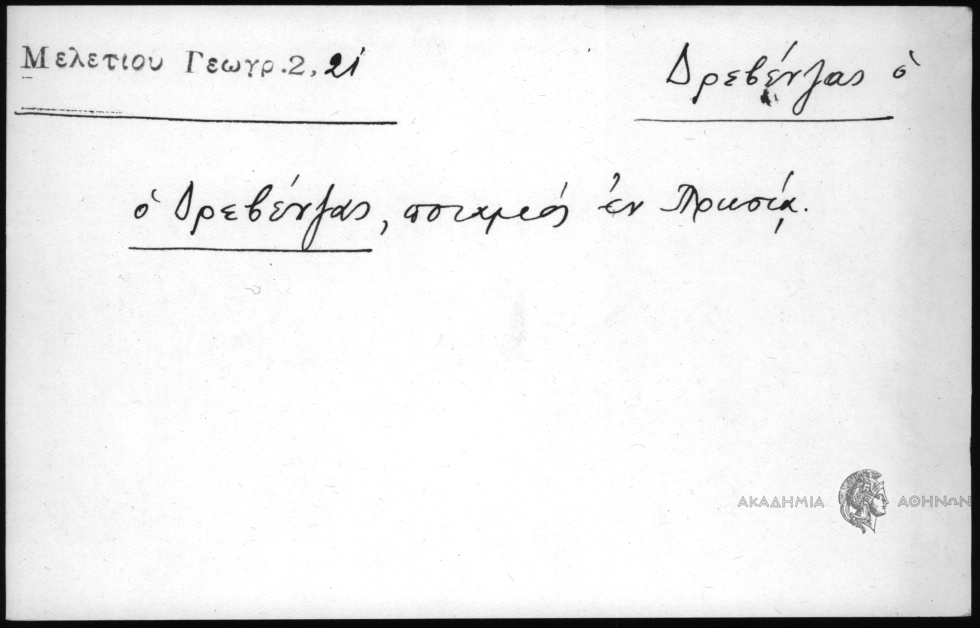 Μελετίου Γεωγρ. 2, 21
Δρεβένζας ὁ
ὁ Δρεβένζας, ποταμός ἐν Πρωσίᾳ.
ΑΚΑΔΗΜΙΑ ΑΘΗΝΩΝ